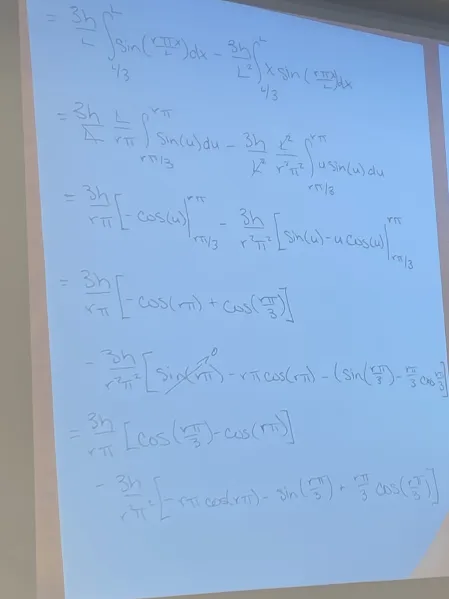 = 3h/L ∫_{L/3}^{L} sin(rπx/L)dx − 3h/L² ∫_{L/3}^{L} x sin(rπx/L)dx
= 3h/L L/rπ ∫_{rπ/3}^{rπ} sin(u)du − 3h/L² L²/r²π² ∫_{rπ/3}^{rπ} u sin(u)du
= 3h/rπ [−cos(u)|_{rπ/3}^{rπ} − 3h/r²π² [sin(u)−u cos(u)|_{rπ/3}^{rπ}
= 3h/rπ [−cos(rπ) + cos(rπ/3)]
− 3h/r²π² [sin(rπ) 0 − rπ cos(rπ) − (sin(rπ/3) − rπ/3 cos rπ/3]
= 3h/rπ [cos(rπ/3) − cos(rπ)]
− 3h/r²π² [−rπ cos(rπ) − sin(rπ/3) + rπ/3 cos(rπ/3)]